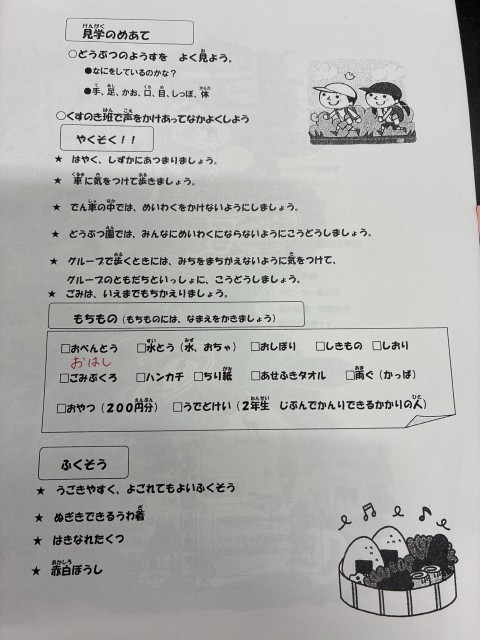 見学のめあて
○どうぶつのようすを よく見よう。
●なにをしているのかな？
●手、足、かお、口、目、しっぽ、体
○くすのき班で声をかけあってなかよくしよう
やくそく！！
★ はやく、しずかにあつまりましょう。
★ 車に気をつけて歩きましょう。
★ でん車の中では、めいわくをかけないようにしましょう。
★ どうぶつ園では、みんなにめいわくにならないようにこうどうしましょう。
★ グループで歩くときには、みちをまちがえないように気をつけて、
グループのともだちといっしょに、こうどうしましょう。
★ ごみは、いえまでもちかえりましょう。
もちもの（もちものには、なまえをかきましょう）
□おべんとう □水とう（水、おちゃ） □おしぼり □しきもの □しおり
おはし
□ごみぶくろ □ハンカチ □ちり紙 □あせふきタオル □雨ぐ（かっぱ）
□おやつ（２００円分） □うでどけい（２年生 じぶんでかんりできるかかりの人）
ふくそう
★ うごきやすく、よごれてもよいふくそう
★ ぬぎきできるうわ着
★ はきなれたくつ
★ 赤白ぼうし